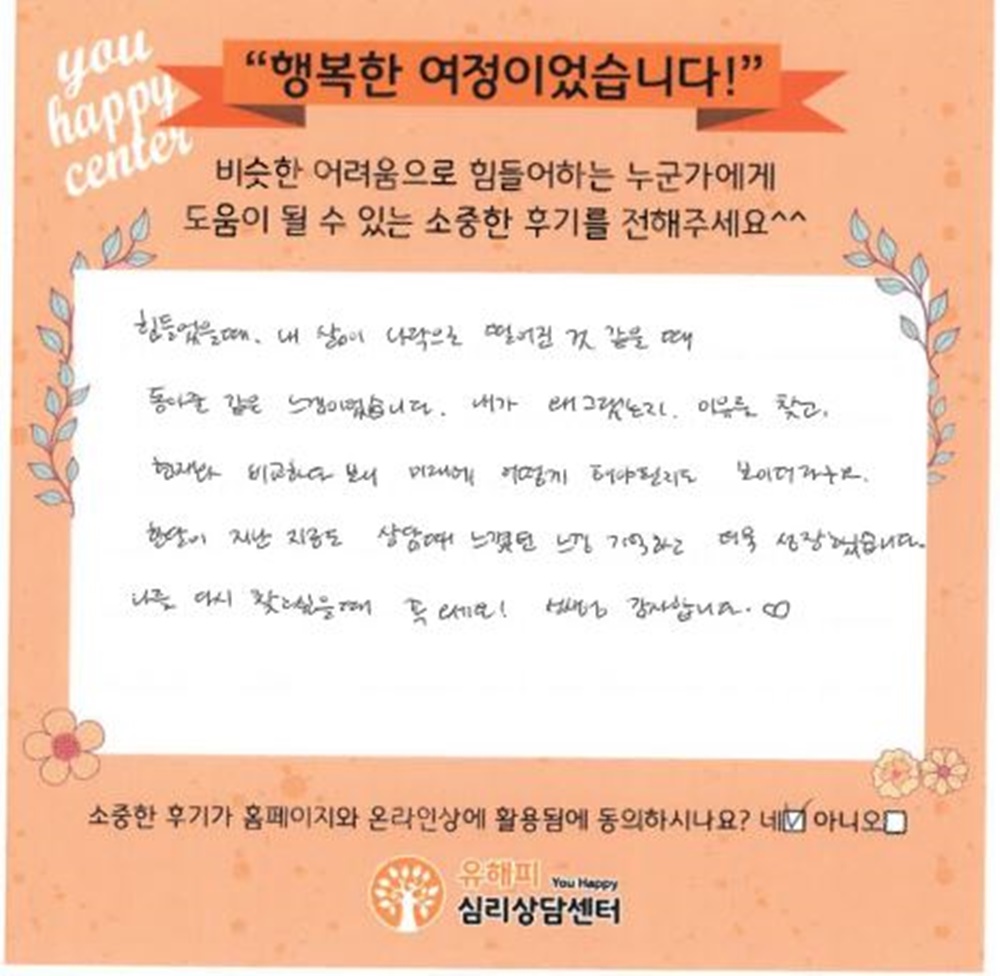 you
happy
center
“행복한 여정이었습니다!”
비슷한 어려움으로 힘들어하는 누군가에게
도움이 될 수 있는 소중한 후기를 전해주세요^^
힘들었을때. 내 삶이 나락으로 떨어진 것 같을 때
동아줄 같은 느낌이었습니다. 내가 왜그랬는지. 이유를 찾고,
현재와 비교하다 보니 미래에 어떻게 해야할지도 보이더라구요.
한달이 지난 지금도 상담때 느꼈던 느낌 기억하고 더욱 성장하였습니다.
나를 다시 찾고싶을때 꼭 오세요! 선생님 감사합니다. ♡
소중한 후기가 홈페이지와 온라인상에 활용됨에 동의하시나요? 네☑ 아니오☐
유해피 You Happy
심리상담센터